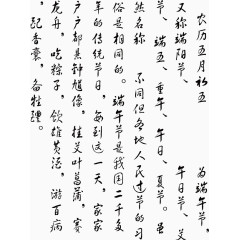 农历五月初五 为端午节,
又称端阳节、 午日节、艾
节、端五、重午、午日、夏节。虽
然名称 不同但各地人民过节的习
俗是相同的。端午节是我国二千多
年的传统节日,每到这一天,家家
户户都悬钟馗像,挂艾叶菖蒲,赛
龙舟,吃粽子,饮雄黄酒,游百病
,配香囊,备牲醴。